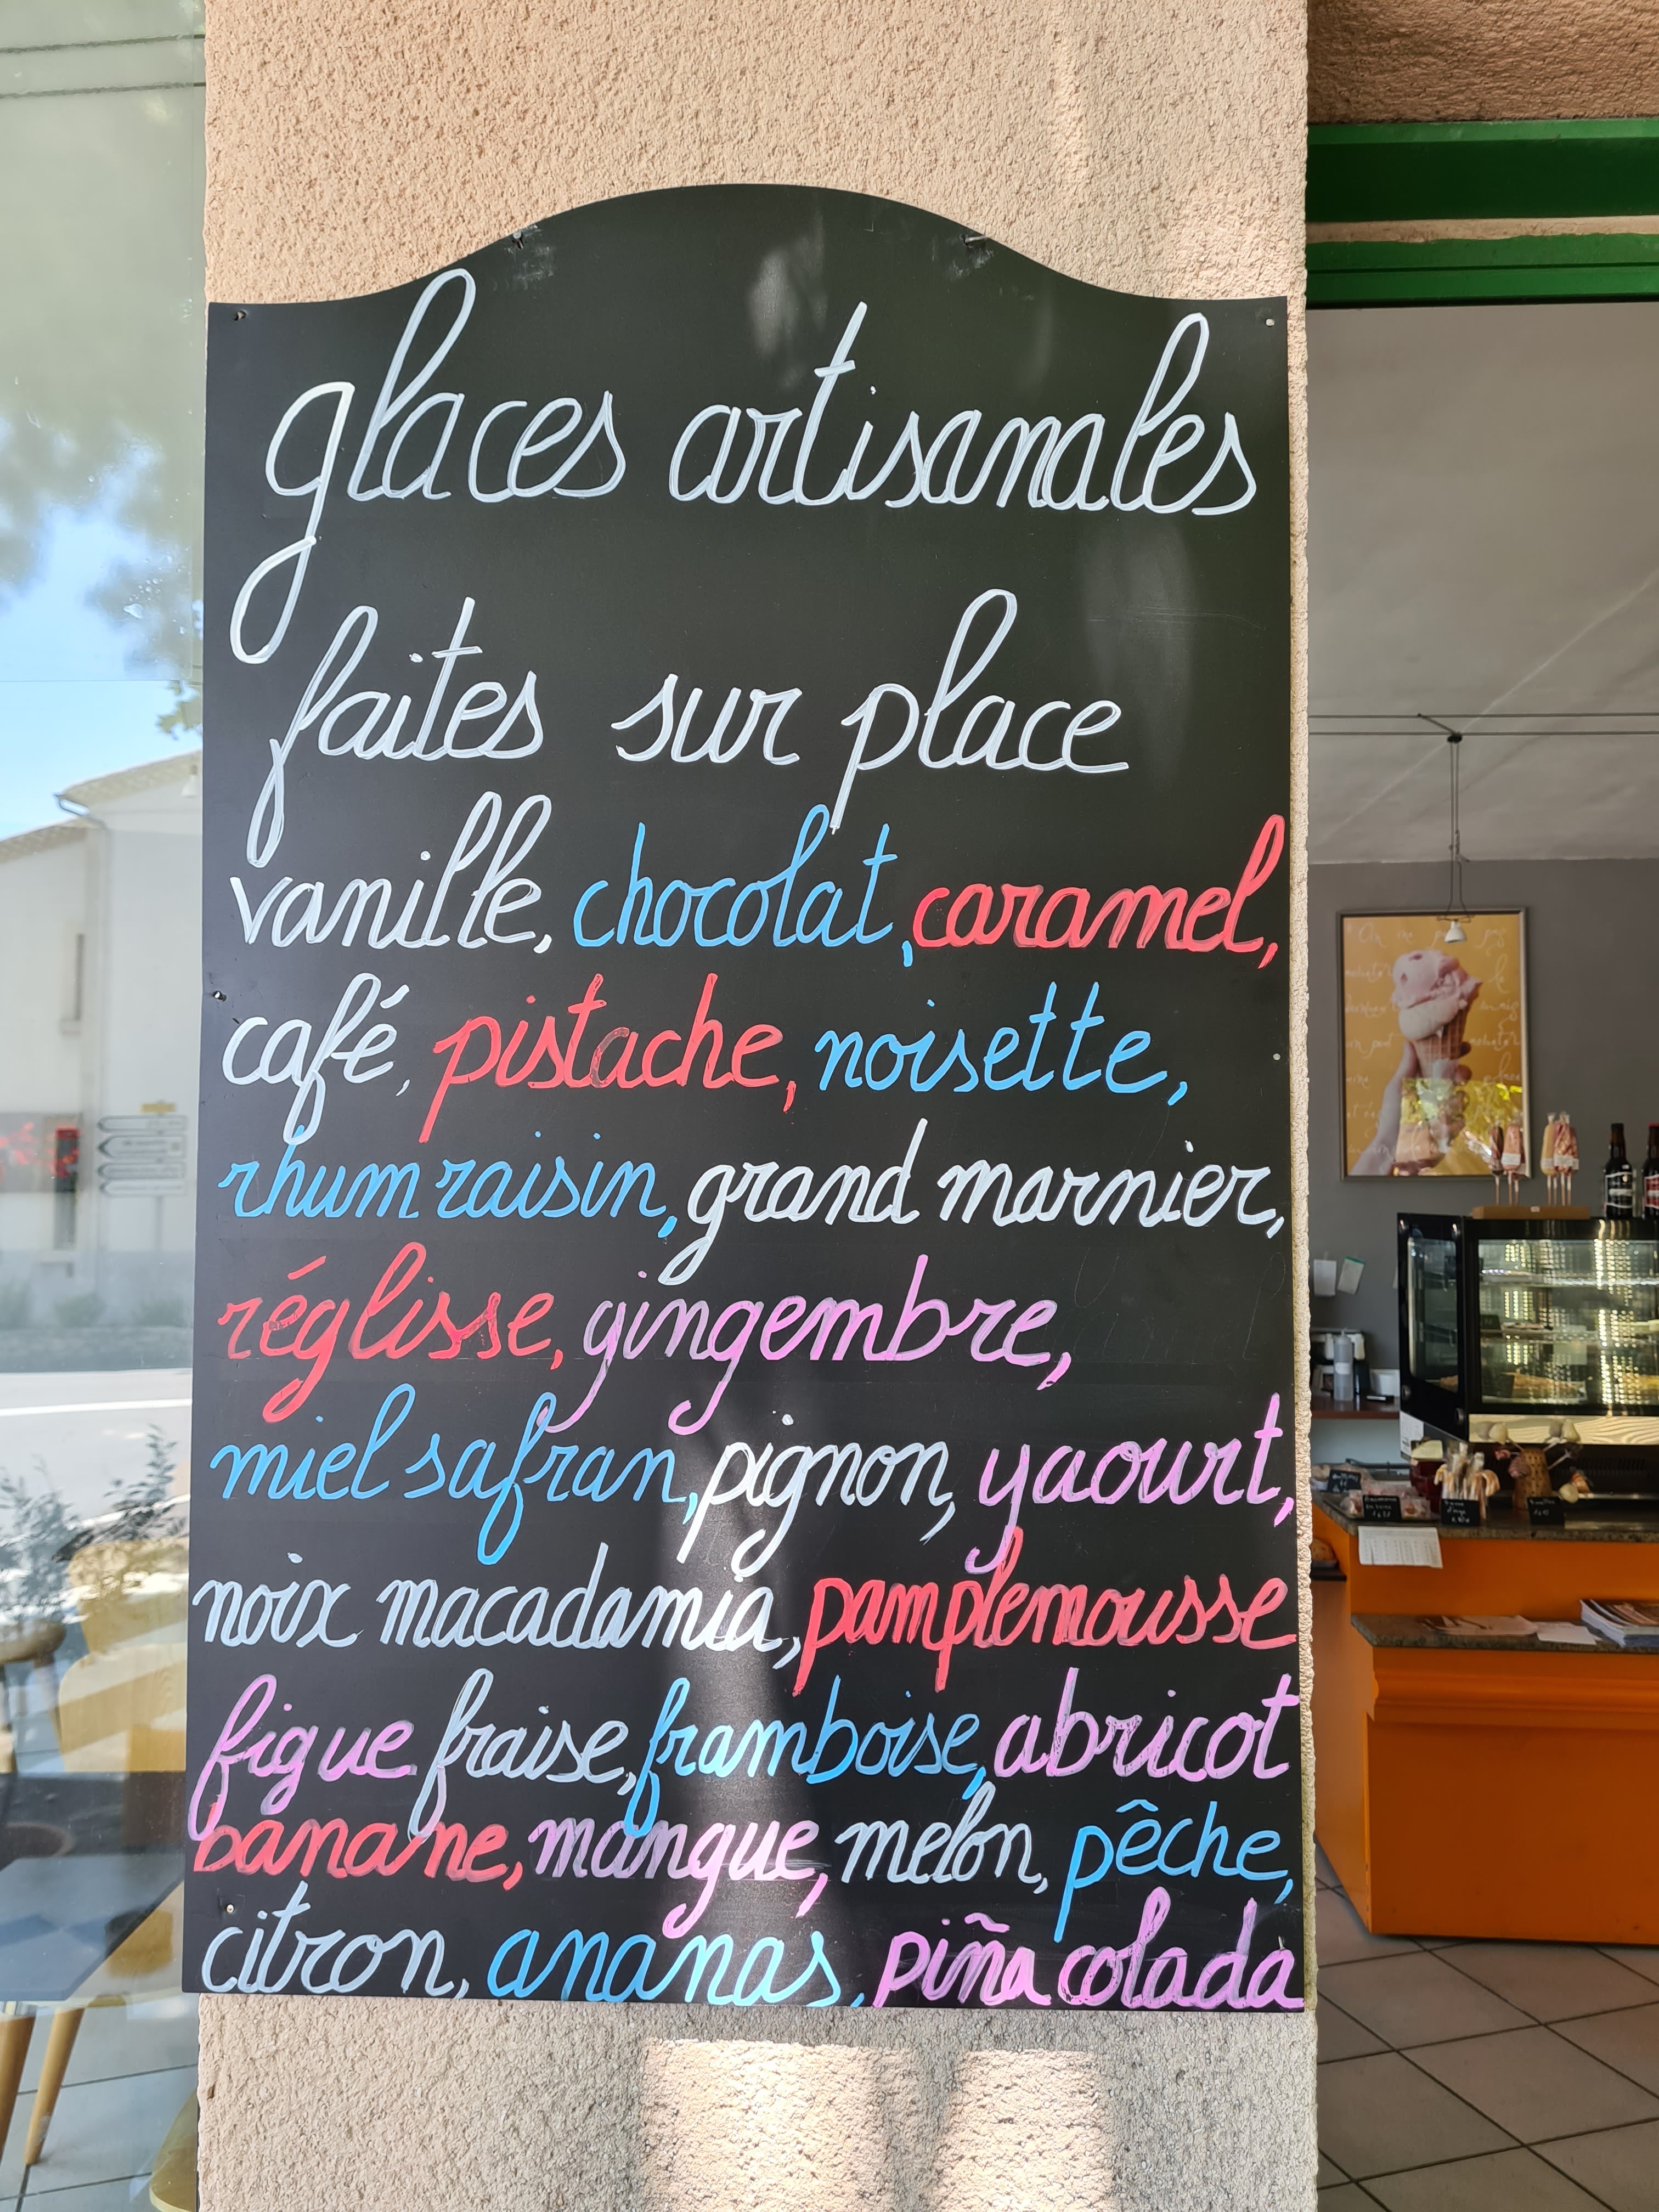 glaces artisanales
faites sur place
vanille, chocolat, caramel,
café, pistache, noisette,
rhum raisin, grand marnier,
réglisse, gingembre,
miel safran, pignon, yaourt,
noix macadamia, pamplemousse
figue fraise, framboise, abricot
banane, mangue, melon, pêche,
citron, ananas, piña colada